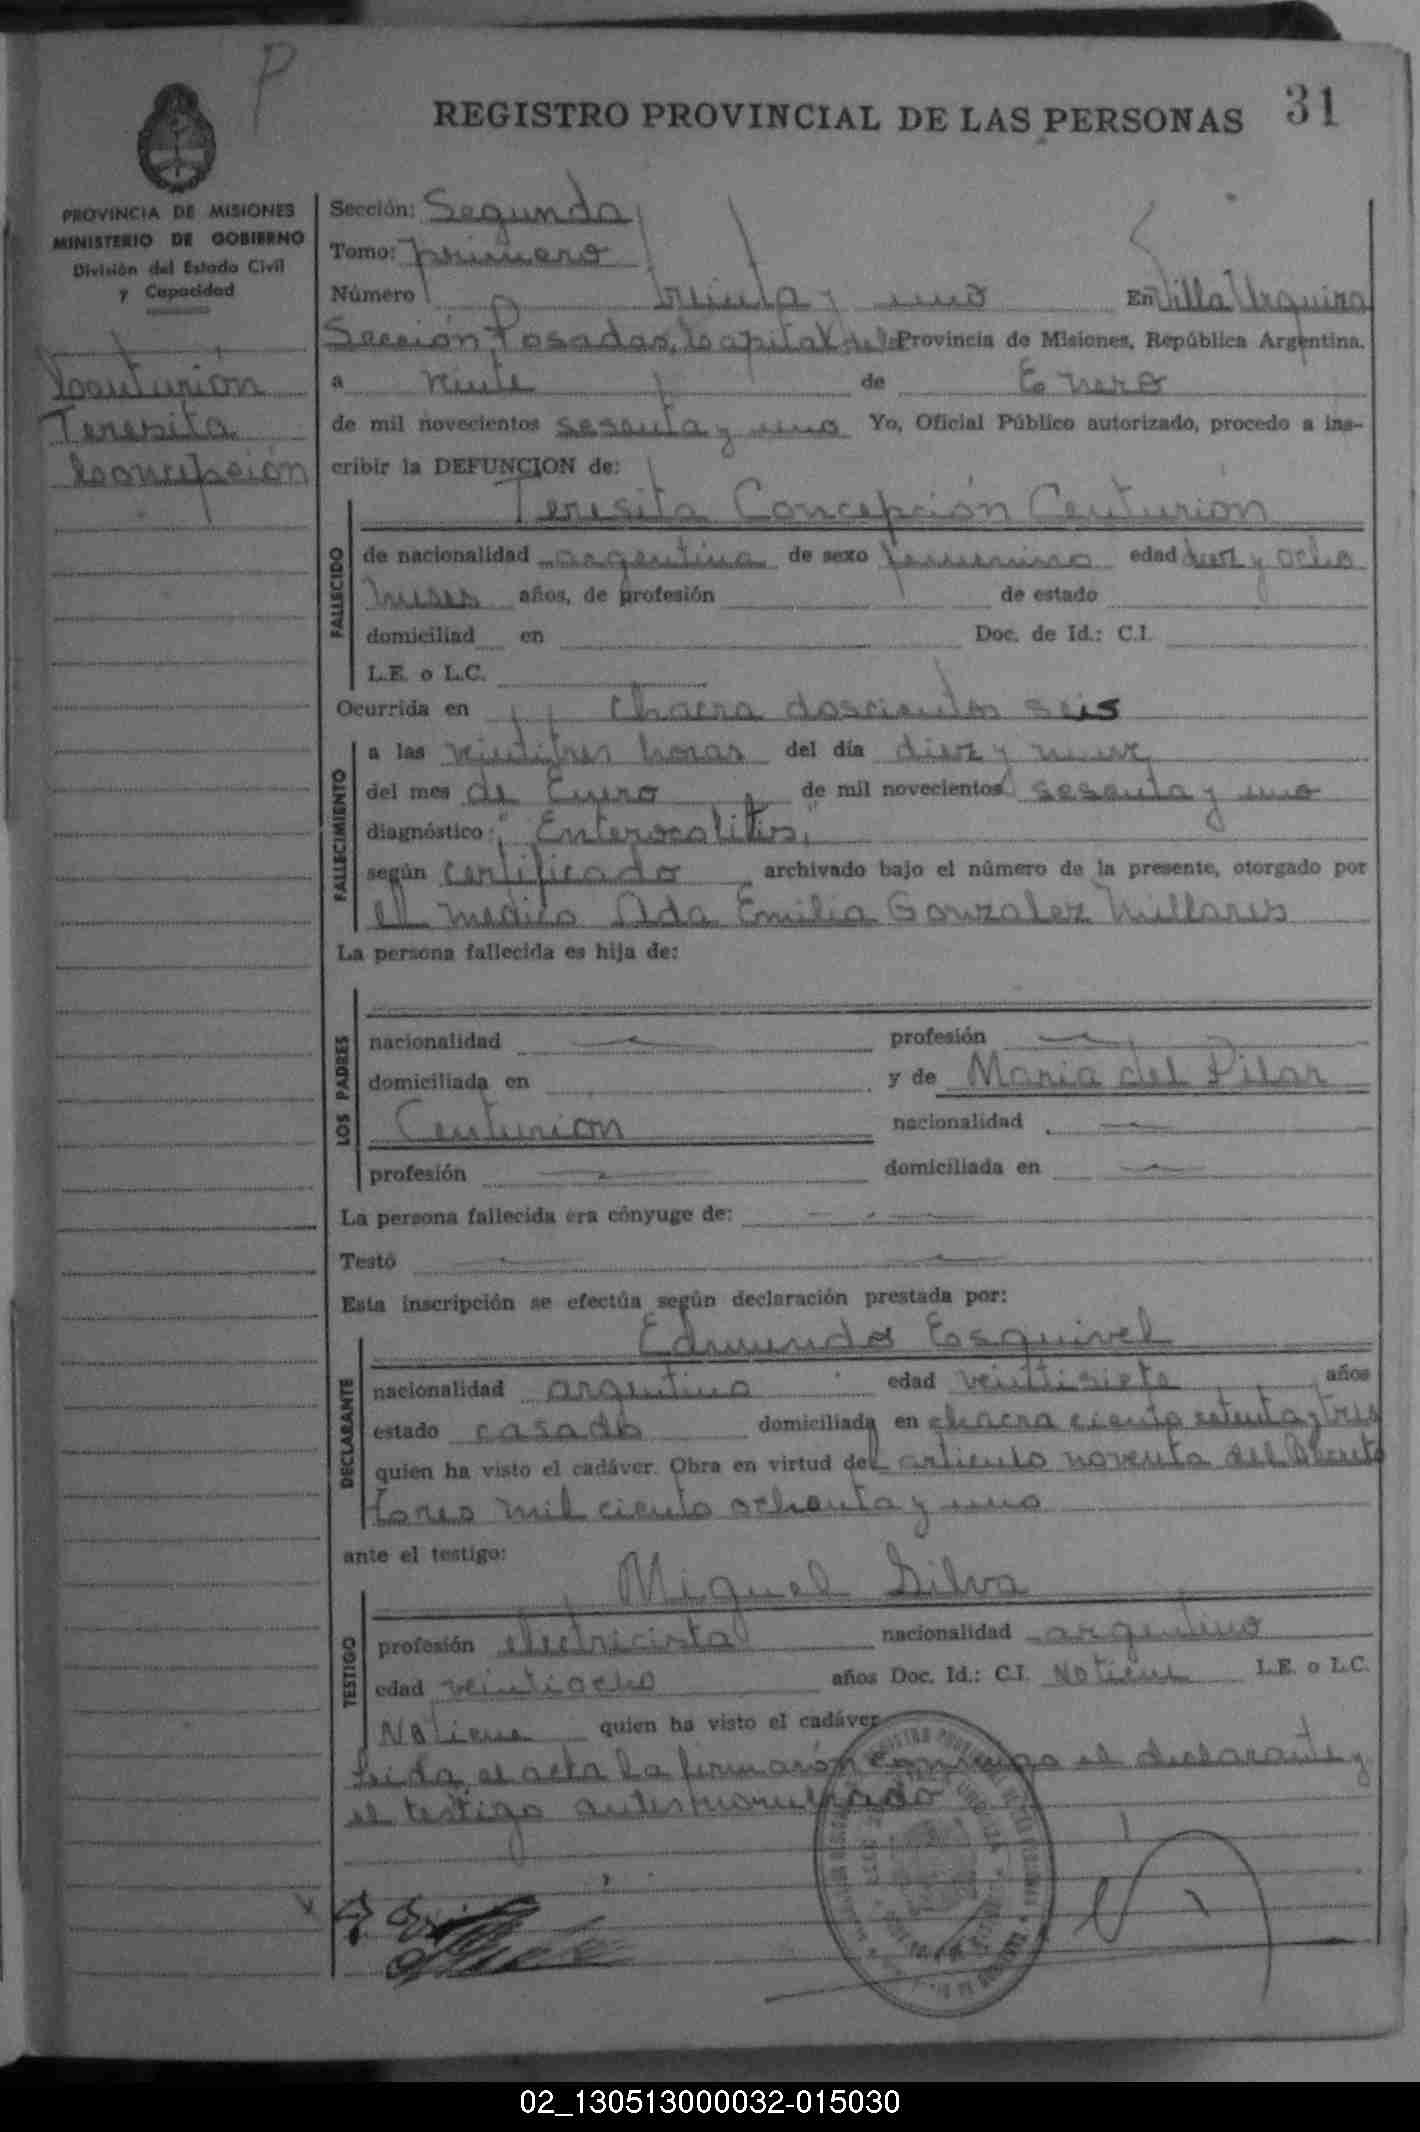 P
REGISTRO PROVINCIAL DE LAS PERSONAS 31
PROVINCIA DE MISIONES
MINISTERIO DE GOBIERNO
División del Estado Civil
y Capacidad
Centurión
Teresita
Concepción
Sección: Segunda
Tomo: primero
Número treinta y uno En Villa Urquiza
Sección, Posadas, Capital de la Provincia de Misiones, República Argentina.
a veinte de Enero
de mil novecientos sesenta y uno Yo, Oficial Público autorizado, procedo a ins-
cribir la DEFUNCION de:
Teresita Concepción Centurión
FALLECIDO
de nacionalidad argentina de sexo femenino edad diez y ocho
meses años, de profesión de estado
domiciliad en Doc. de Id.: C.I.
L.E. o L.C.
Ocurrida en Chacra doscientos seis
FALLECIMIENTO
a las veintitres horas del día diez y nueve
del mes de Enero de mil novecientos sesenta y uno
diagnóstico: "Enterocolitis"
según certificado archivado bajo el número de la presente, otorgado por
el medico Ada Emilia Gonzalez Millares
La persona fallecida es hija de:
LOS PADRES
nacionalidad profesión
domiciliada en y de Maria del Pilar
Centurión nacionalidad
profesión domiciliada en
La persona fallecida era cónyuge de:
Testó
Esta inscripción se efectúa según declaración prestada por:
Edmundo Esquivel
DECLARANTE
nacionalidad argentino edad veintisiete años
estado casado domiciliada en chacra ciento setenta y tres
quien ha visto el cadáver. Obra en virtud del articulo noventa del Decreto
tores mil ciento ochenta y uno
ante el testigo:
Miguel Silva
TESTIGO
profesión electricista nacionalidad argentino
edad veintiocho años Doc. Id.: C.I. No tiene L.E. o L.C.
No tiene quien ha visto el cadáver
Leida el acta la firmarón conmigo el declarante y
el testigo antesmencionado
02_130513000032-015030